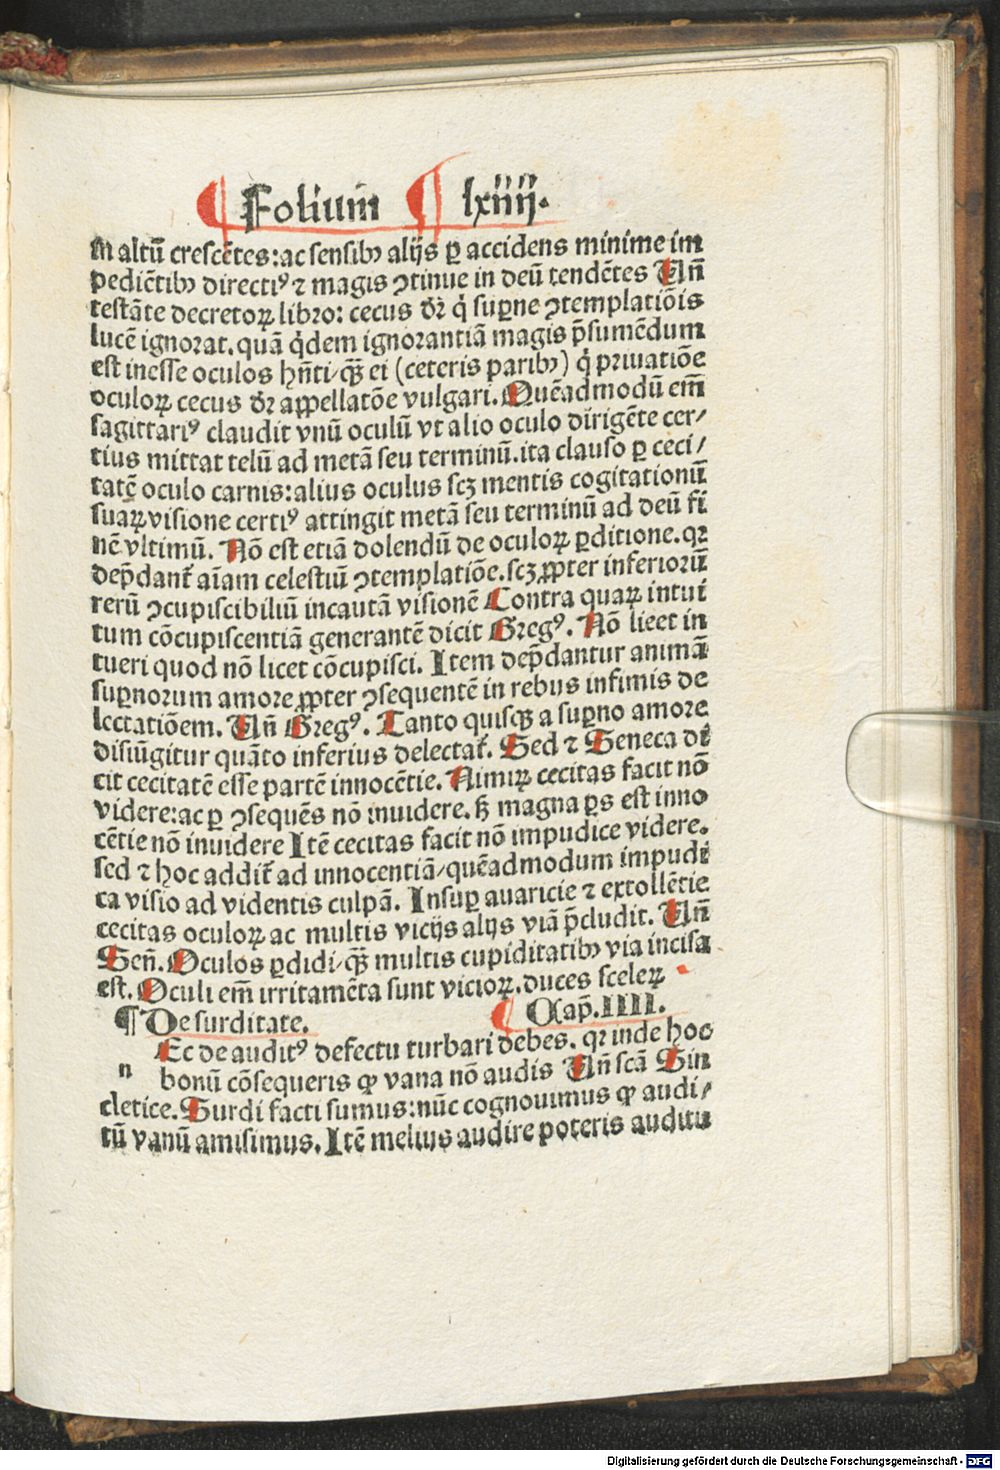 ¶ Folium̄ ¶ lxiiij.
in altū crescētes:ac sensibꝰ alijs ꝑ accidens minime im
pediētibꝰ directiꝰ ⁊ magis ꝯtinue in deū tendētes Un̄
testāte decretoꝝ libro: cecus dr̄ qͥ suꝑne ꝯtemplatiōis
lucē ignorat.quā qͥdem ignorantiā magis p̄sumēdum
est inesse oculos hn̄ti/qꝫ̄ ei (ceteris paribꝰ) qͥ priuatiōe
oculoꝝ cecus dr̄ aꝓpellatōe vulgari. Quēadmodū em̄
sagittariꝰ claudit vnū oculū vt alio oculo dirigēte cer/
tius mittat telū ad metā seu terminū.ita clauso ꝑ ceci/
tatē oculo carnis:alius oculus scꝫ mentis cogitationū
suaꝝ visione certiꝰ attingit metā seu terminū ad deū fi
nē vltimū. Nō est etiā dolendū de oculoꝝ ꝑditione.qꝛ
dep̄dant᷑ aīam celestiū ꝯtemplatiōe.scꝫ ꝓpter inferiorū
rerū ꝯcupiscibiliū incautā visionē Contra quaꝝ intui
tum cōcupiscentiā generantē dicit Gregꝰ. Nō licet in
tueri quod nō licet cōcupisci. Item dep̄dantur animā
suꝑnorum amore ꝓpter ꝯsequentē in rebus infimis de
lectatiōem. Un̄ Gregꝰ. Tanto quisqꝫ a suꝑno amore
disiūgitur quāto inferius delectat᷑. Sed ⁊ Seneca di
cit cecitatē esse partē innocētie. Nimiꝝ cecitas facit nō
videre:ac ꝑ ꝯsequēs nō inuidere.ꝫ magna ꝑs est inno
cētie nō inuidere Itē cecitas facit nō impudice videre.
sed ⁊ hoc addit᷑ ad innocentiā/quēadmodum impudi
ca visio ad videntis culpā. Insuꝑ auaricie ⁊ extollētie
cecitas oculoꝝ ac multis vicijs alijs viā p̄cludit. Un̄
Sen̄. Oculos ꝑdidi/qꝫ̄ multis cupiditatibꝰ via incisa
est. Oculi em̄ irritamēta sunt vicioꝝ.duces sceleꝝ
¶ De surditate. ¶ Cap̄.IIII.
n Ec de auditꝰ defectu turbari debes. qꝛ inde hoc
bonū cōsequeris ꝙ vana nō audis Un̄ scā Sin
cletice. Surdi facti sumus:nūc cognouimus ꝙ audi/
tū vanū amisimus. Itē melius audire poteris auditu
Digitalisierung gefördert durch die Deutsche Forschungsgemeinschaft - DFG